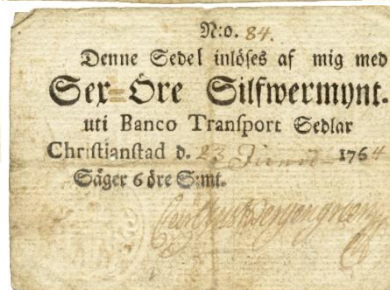 N:o. 84.
Denne Sedel inlöses af mig med
Sex-Öre Silfwermynt.
uti Banco Transport Sedlar
Christianstad d. 23 Junii 1764
Säger 6 öre S:mt.